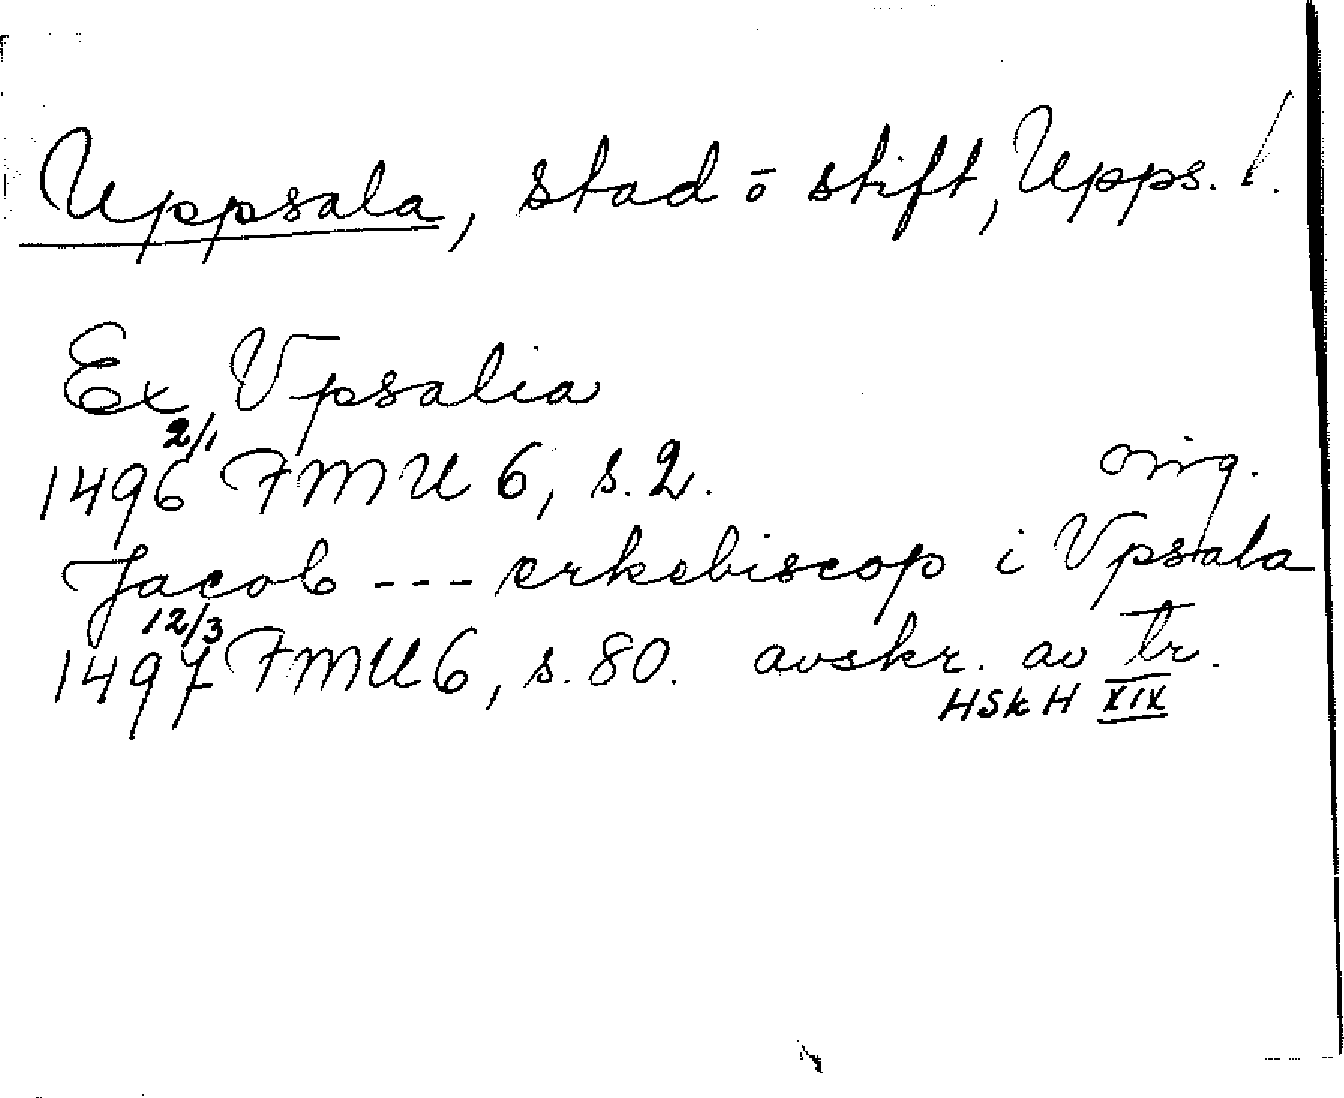 Uppsala, stad ō stift, Upps. l.
Ex Vpsalia
2/1
1496 FMU 6, s. 2. orig.
Jacob --- erkebiscop i Vpsala
12/3
1497 FMU 6, s. 80. avskr. av tr.
HSkH XIX